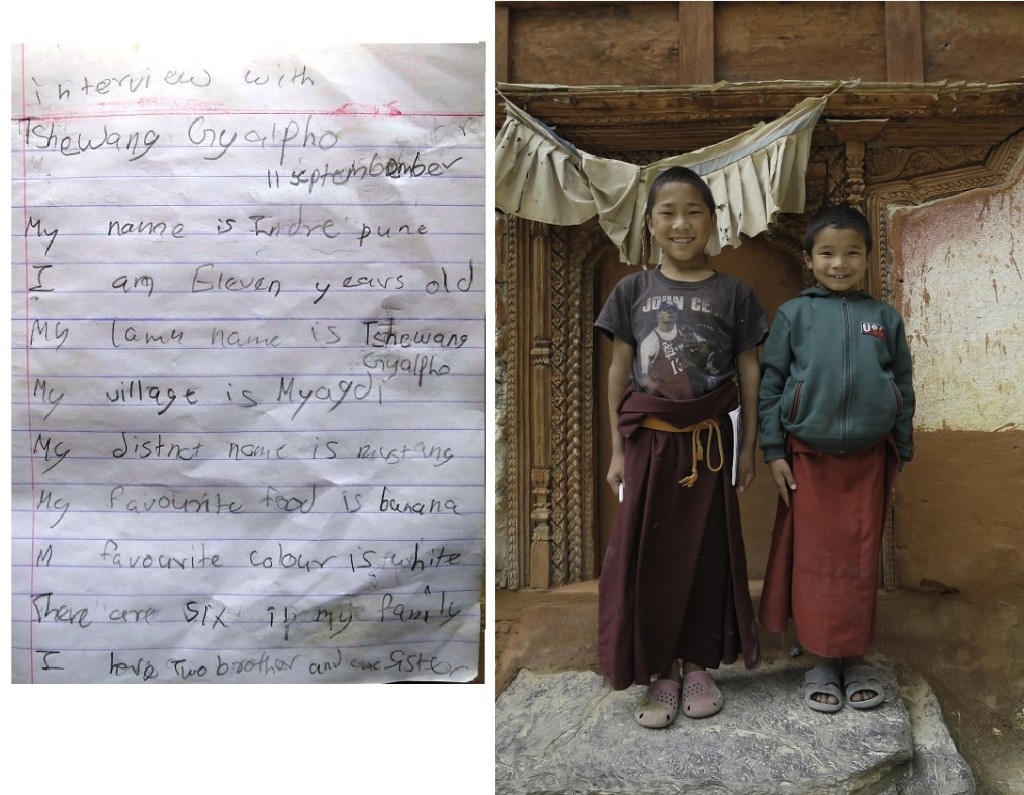 interview with
Tshewang Gyalpho
11 septembomber
My name is Indre pune
I am Eleven years old
My lamu name is Tshewang
Gyalpho
My village is Myagdi
My district name is mustang
My favourite food is banana
M favourite colour is white
There are six in my family
I have Two brother and one sister
JOHN CE
13